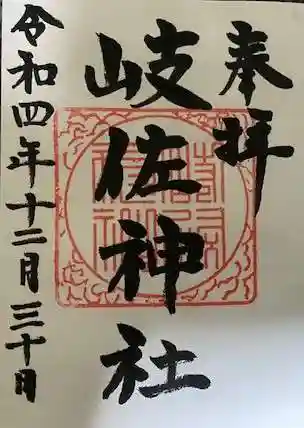 奉拝
岐佐神社
令和四年十二月三十日